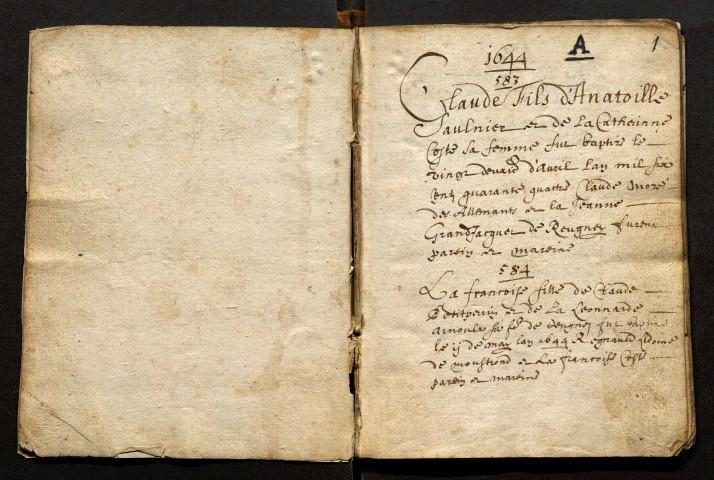 1644 A 1
583
Claude Fils d'Anatoille
Saulnier et de La Catheinne
Coste sa femme fut baptise le
vingt d'Avril Lan mil six
cent quarante quattre Claude More
des Allemants et la Jeanne
Grandjacquet de Reugney furent
parein et mareine
584
La francoise fille de Claude
Petitperrin et de La Leonnarde
sa fe de reugney fut baptise
le ij de may lan 1644 Regnauld
de et La francoise Coste
parein et mareine